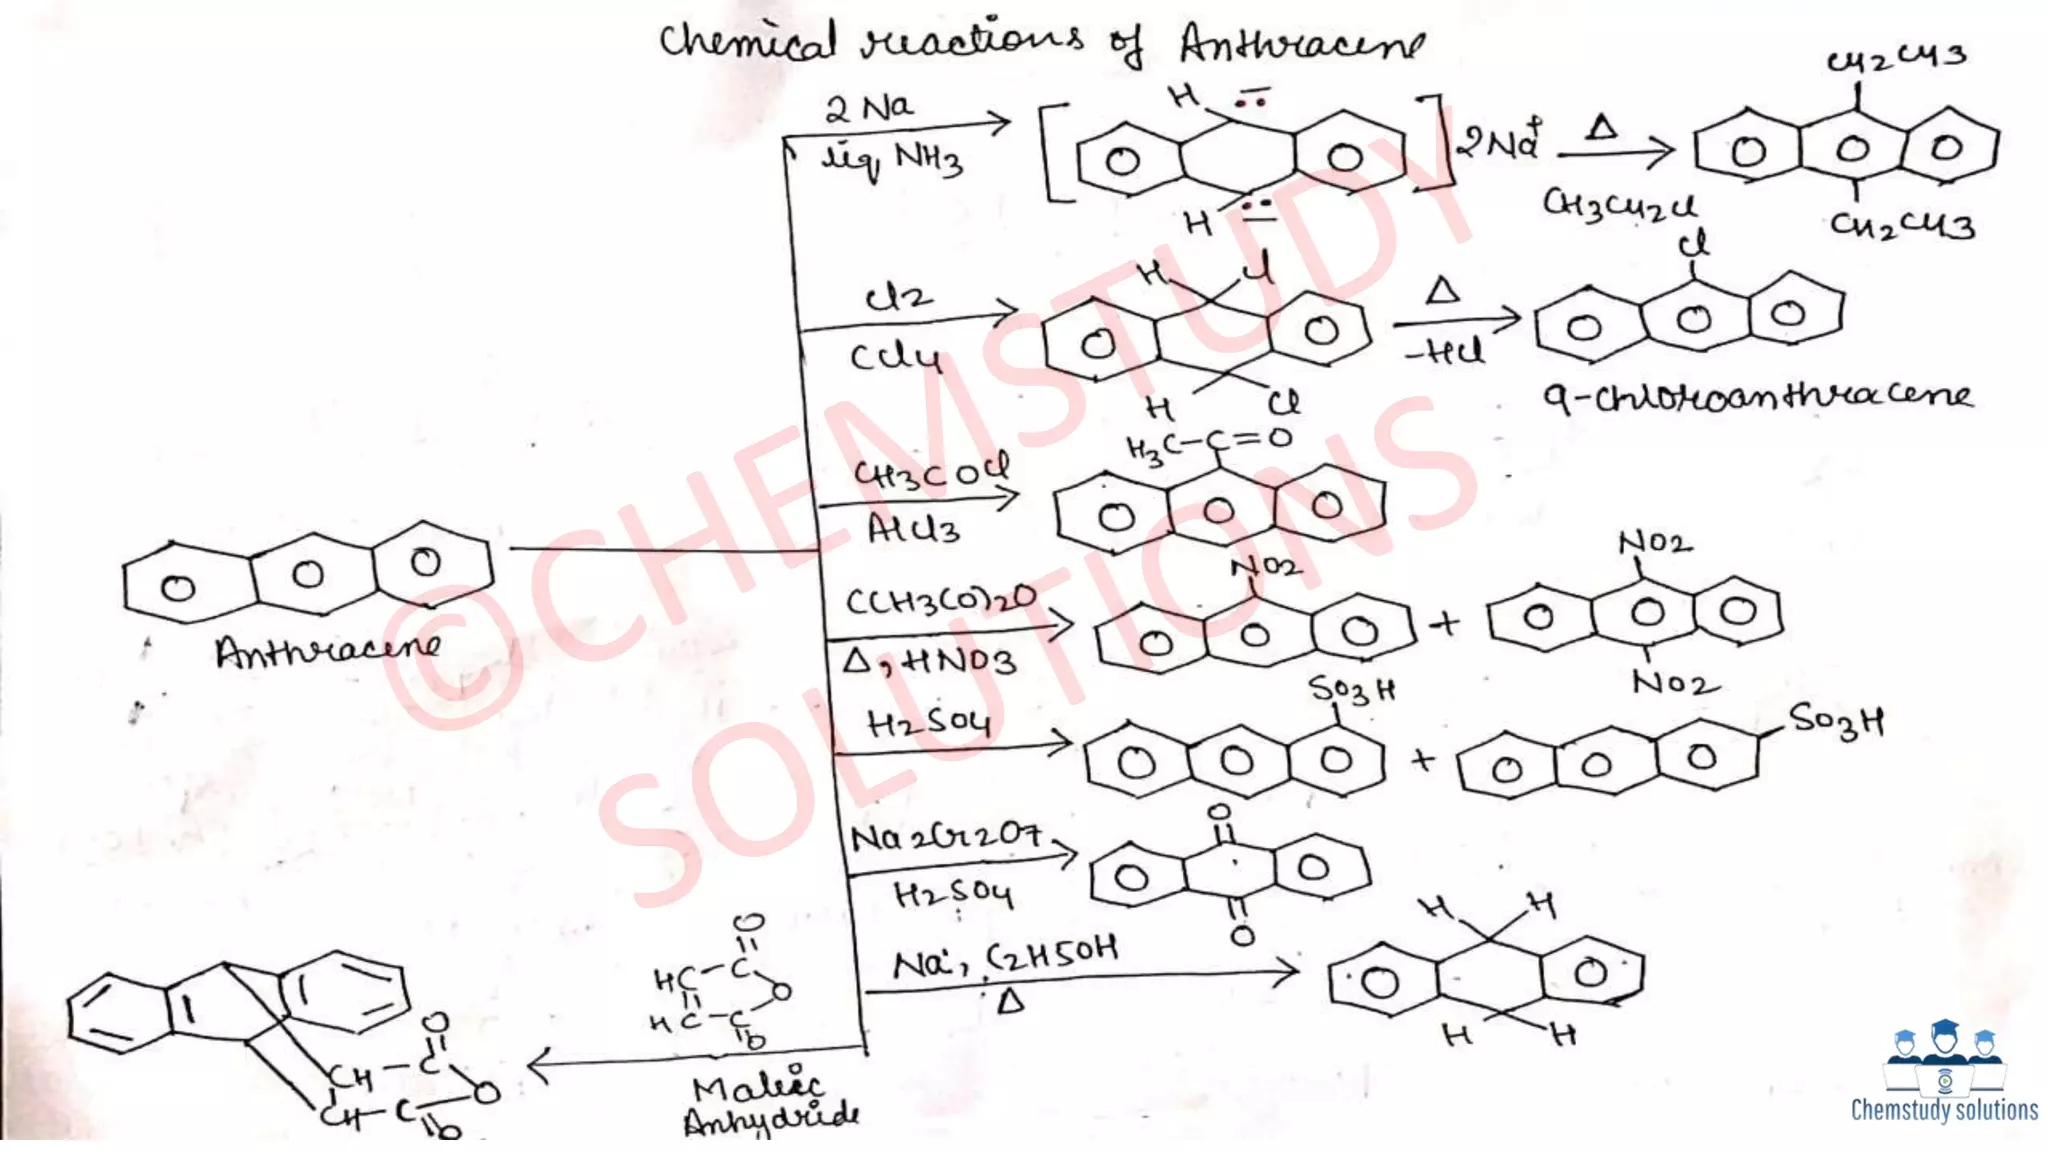 Chemical reactions of Anthracene
2 Na
liq NH3
H
H
2Na+
Δ
CH3CH2Cl
CH2CH3
CH2CH3
Cl2
CCl4
H
Cl
H
Cl
Δ
-HCl
Cl
9-chloroanthracene
CH3COCl
AlCl3
H3C-C=O
Anthracene
(CH3CO)2O
Δ, HNO3
NO2
+
NO2
NO2
H2SO4
SO3H
+
SO3H
Na2Cr2O7
H2SO4
O
O
Na, C2H5OH
Δ
H
H
H
H
O
HC-C
O
HC-C
O
Maleic
Anhydride
O
CH-C
O
CH-C
O
©CHEMSTUDY
SOLUTIONS
Chemstudy solutions